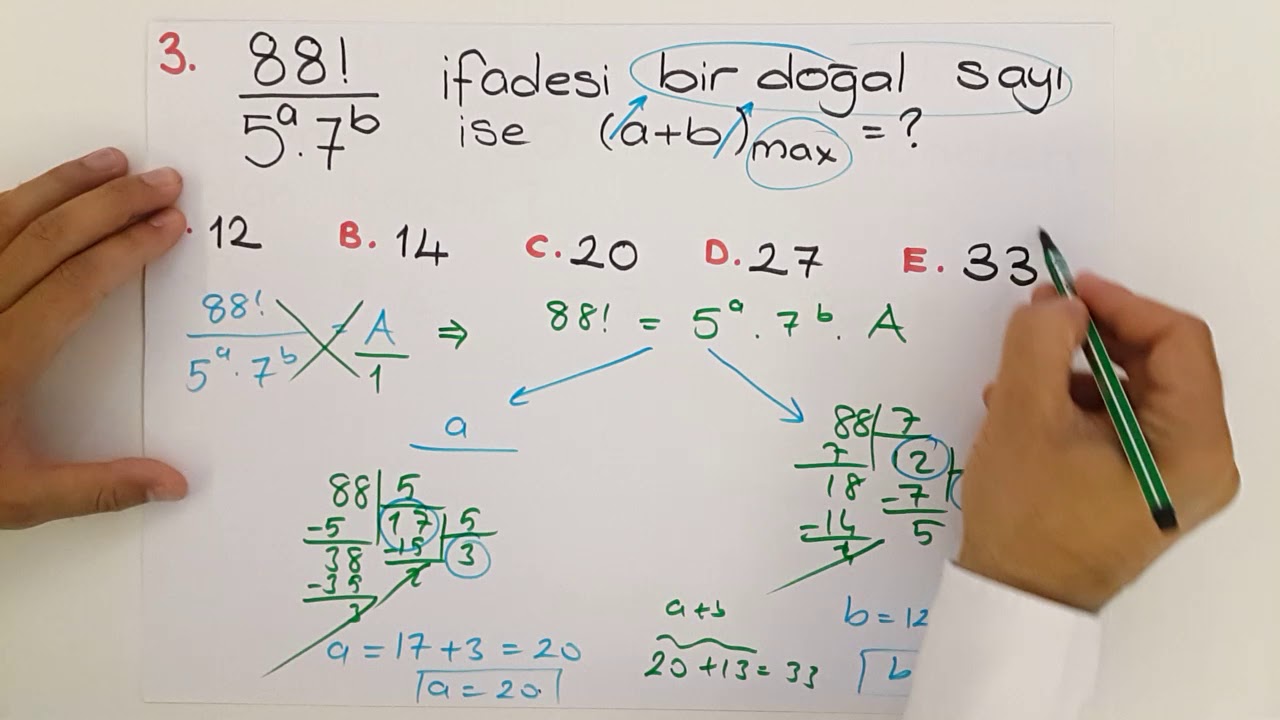 3. 88! / 5^a . 7^b ifadesi bir doğal sayı
ise (a+b)max = ?
12 B. 14 C. 20 D. 27 E. 33
88! / 5^a . 7^b = A / 1 ⇒ 88! = 5^a . 7^b . A
a
88 | 5
-5 17 | 5
38 -15 3
-35 2
3
88 | 7
7
18 -7
-14 5
a = 17 + 3 = 20
a = 20
a+b
20 + 13 = 33
b = 12
b